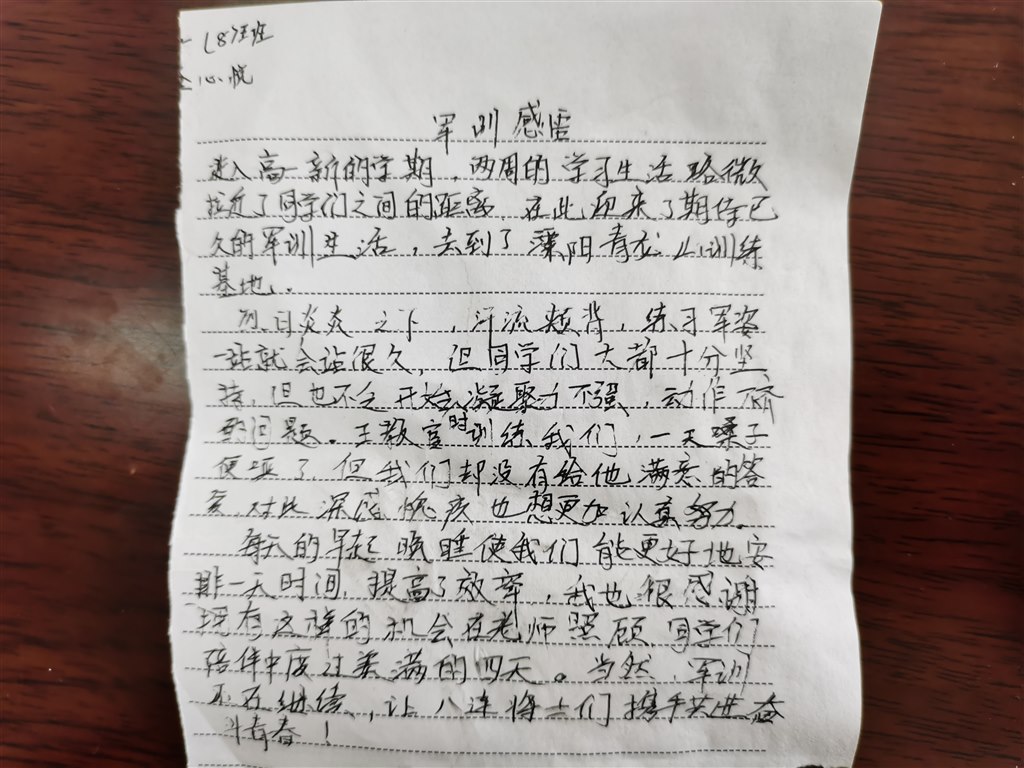 (8)班
心悦
军训感
进入高一新的学期，两周的学习生活略微
拉近了同学们之间的距离，在此迎来了期待已
久的军训生活，去到了溧阳青龙山训练
基地。
烈日炎炎之下，汗流颊背，练习军姿
一站就会站很久，但同学们大都十分坚
持，但也不乏开始凝聚力不强，动作不齐
的问题。王教官时训练我们，一天嗓子
便哑了，但我们却没有给他满意的答
复，对此深感愧疚也想更加认真努力。
每天的早起晚睡使我们能更好地安
排一天时间，提高了效率，我也很感谢
现有这样的机会在老师照顾同学们
陪伴中度过美满的四天。当然，军训
还在继续，让八连将士们携手共进奋
斗青春！